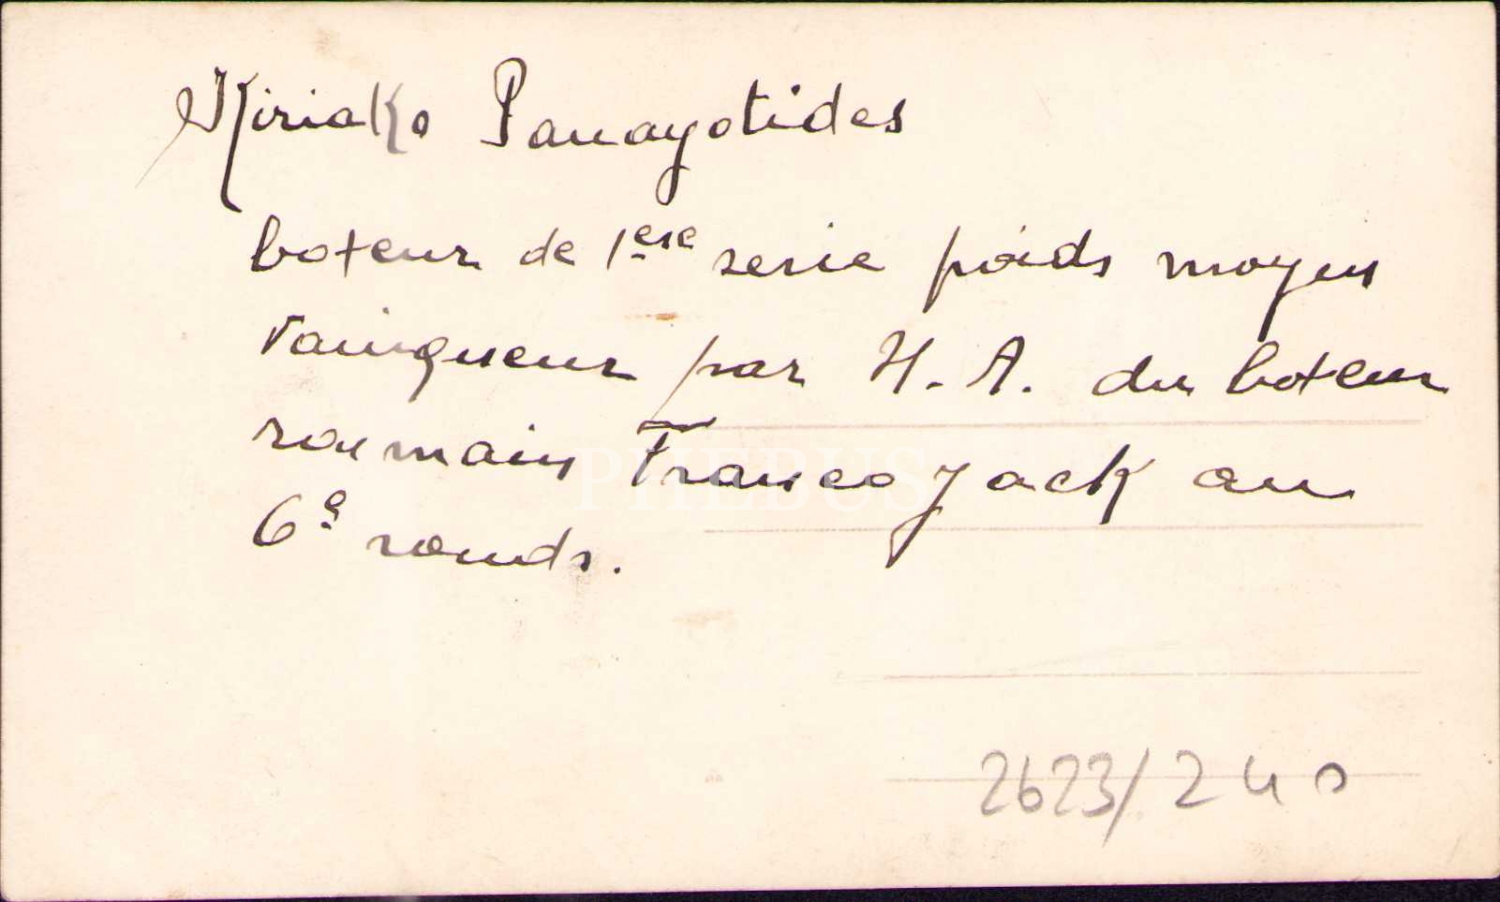 Kiriako Panayotides
boxeur de 1ere serie poids moyen
vainqueur par H. A. du boxeur
roumain Franco Jack au
6e rounds.
PHEBUS
2623/240